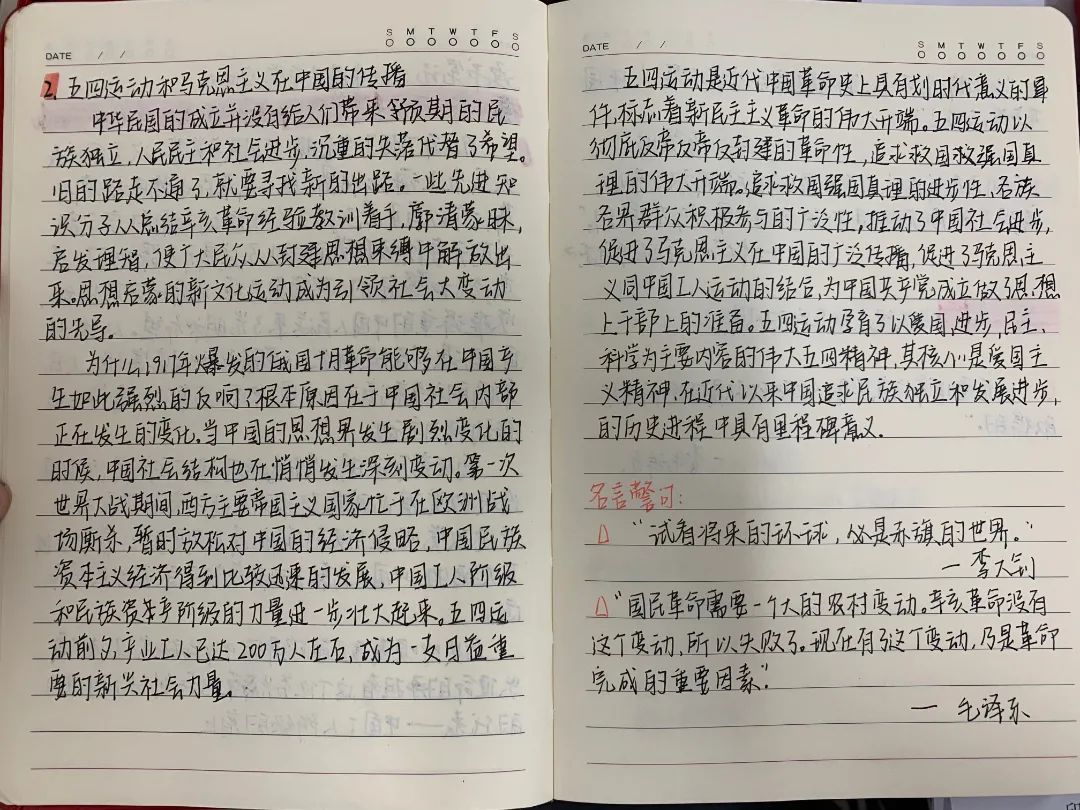 DATE / /
S M T W T F S
2. 五四运动和马克思主义在中国的传播
中华民国的成立并没有给人们带来预期的民
族独立，人民民主和社会进步，沉重的失落代替了希望。
旧的路走不通了，就要寻找新的出路。一些先进知
识分子从总结辛亥革命经验教训着手，廓清蒙昧，
启发理智，使广大民众从封建思想束缚中解放出
来。思想启蒙的新文化运动成为引领社会大变动
的先导。
为什么1917年爆发的俄国十月革命能够在中国产
生如此强烈的反响？根本原因在于中国社会内部
正在发生的变化。当中国的思想界发生剧烈变化的
时候，中国社会结构也在悄悄发生深刻变动。第一次
世界大战期间，西方主要帝国主义国家忙于在欧洲战
场厮杀，暂时放松对中国的经济侵略，中国民族
资本主义经济得到比较迅速的发展，中国工人阶级
和民族资产阶级的力量进一步壮大起来。五四运
动前夕，产业工人已达200万人左右，成为一支日益重
要的新兴社会力量。
DATE / /
S M T W T F S
五四运动是近代中国革命史上具有划时代意义的事
件，标志着新民主主义革命的伟大开端。五四运动以
彻底反帝反帝反封建的革命性，追求救国救强国真
理的伟大开端。追求救国强国真理的进步性，各族
各界群众积极参与的广泛性，推动了中国社会进步，
促进了马克思主义在中国的广泛传播，促进了马克思主
义同中国工人运动的结合，为中国共产党成立做了思想
上干部上的准备。五四运动孕育了以爱国、进步、民主、
科学为主要内容的伟大五四精神，其核心是爱国主
义精神，在近代以来中国追求民族独立和发展进步，
的历史进程中具有里程碑意义.
名言警句：
△ “试看将来的环球，必是赤旗的世界。”
— 李大钊
△“国民革命需要一个大的农村变动。辛亥革命没有
这个变动，所以失败了。现在有了这个变动，乃是革命
完成的重要因素.”
— 毛泽东